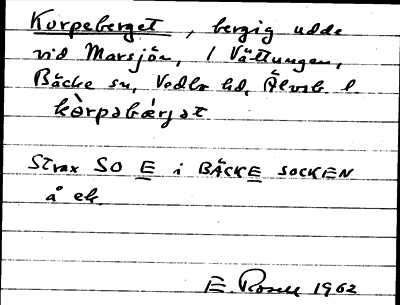 Korpeberget, bergig udde
vid Marsjön, / Vättungen,
Bäcke sn, Vedbo hd, Älvsb. l
kȯ̀rpəbæ̀rjət
Strax SO E i BÄCKE SOCKEN
å ek.
E. Rosell 1962